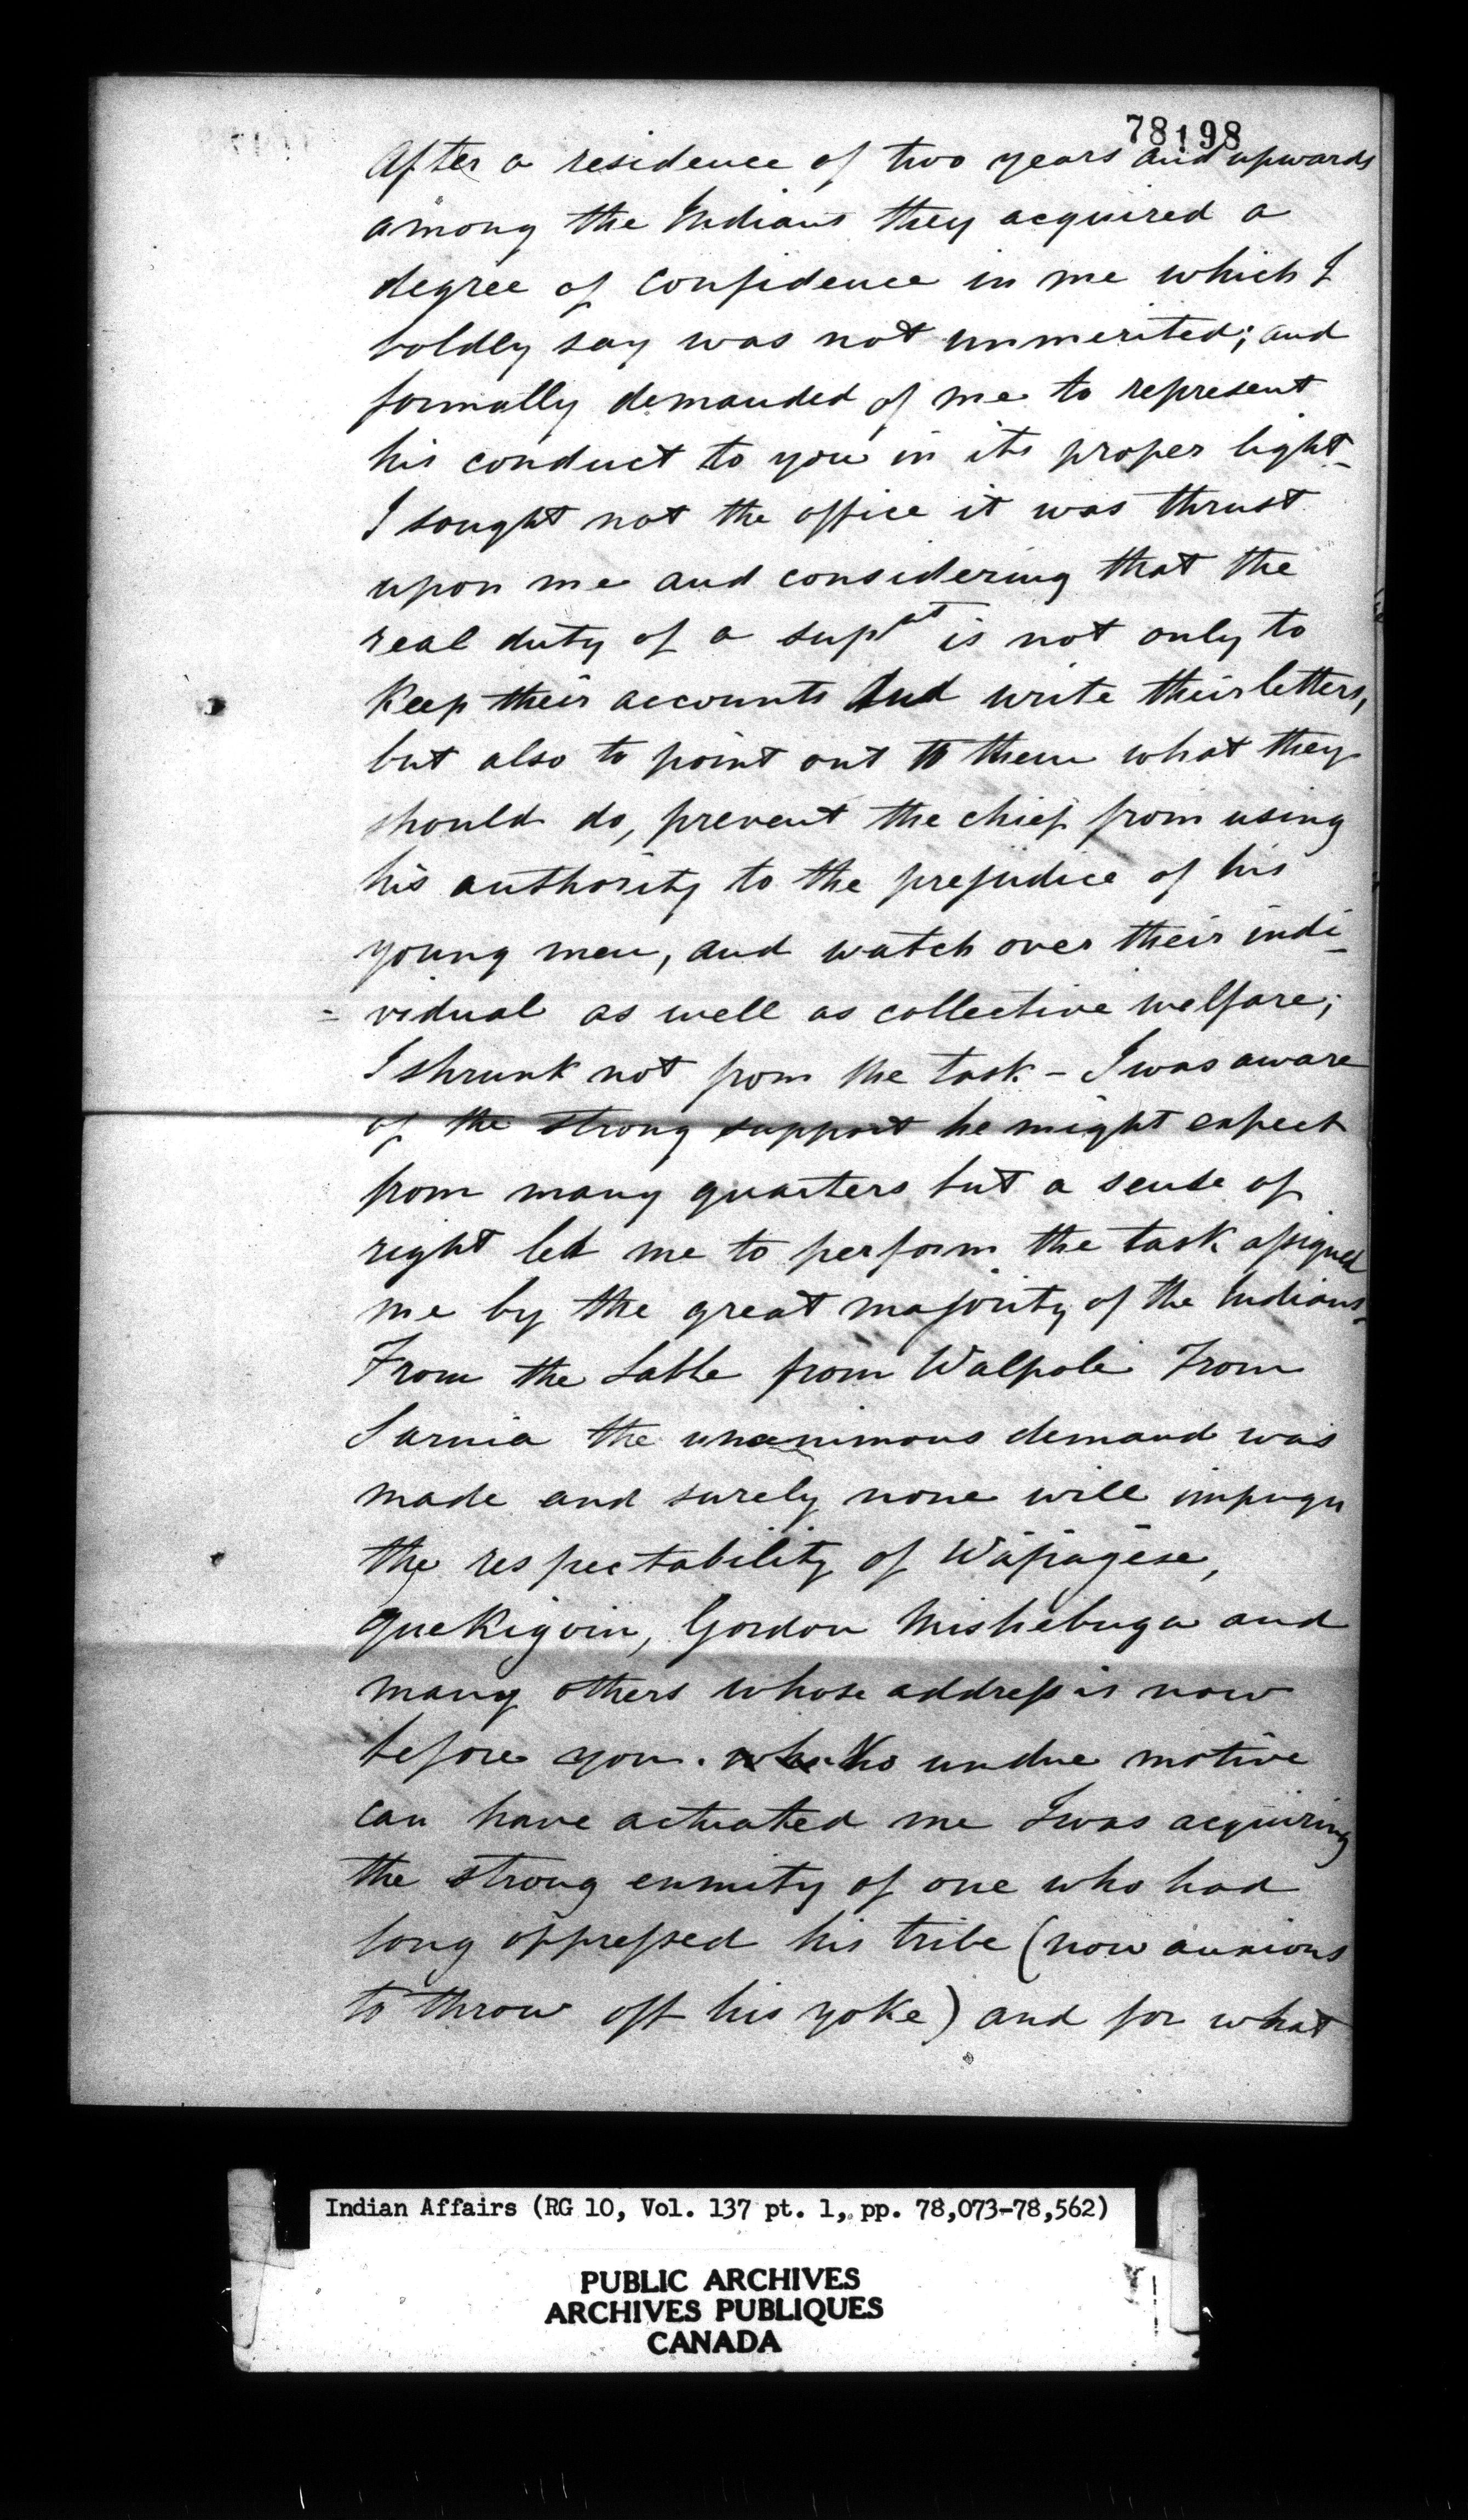 78198
After a residence of two years and upwards
among the Indians they acquired a
degree of confidence in me which I
boldly say was not unmerited; and
formally demanded of me to represent
his conduct to you in its proper light_
I sought not the office it was thrust
upon me and considering that the
real duty of a supt is not only to
Keep their accounts And write their letters,
but also to point out to them what they
should do, prevent the chief from using
his authority to the prejudice of his
young men, and watch over their indi_
= vidual as well as collective welfare;
I shrunk not from the task - I was aware
of the strong support he might expect
from many quarters but a sense of
right led me to perform the task assigned
me by the great majority of the Indians-
From the Sable from Walpole From
Sarnia the unanimous demand was
made and surely none will impugn
the respectability of Wāpāgēse,
Quekigoin, Gordon Mishebuga and
many others whose address is now
before you. No undue motive
can have actuated me I was acquiring
the strong enmity of one who had
long oppressed his tribe (now anxious
to throw off his yoke) and for what
Indian Affairs (RG 10, Vol. 137 pt. 1, pp. 78,073-78,562)
PUBLIC ARCHIVES
ARCHIVES PUBLIQUES
CANADA